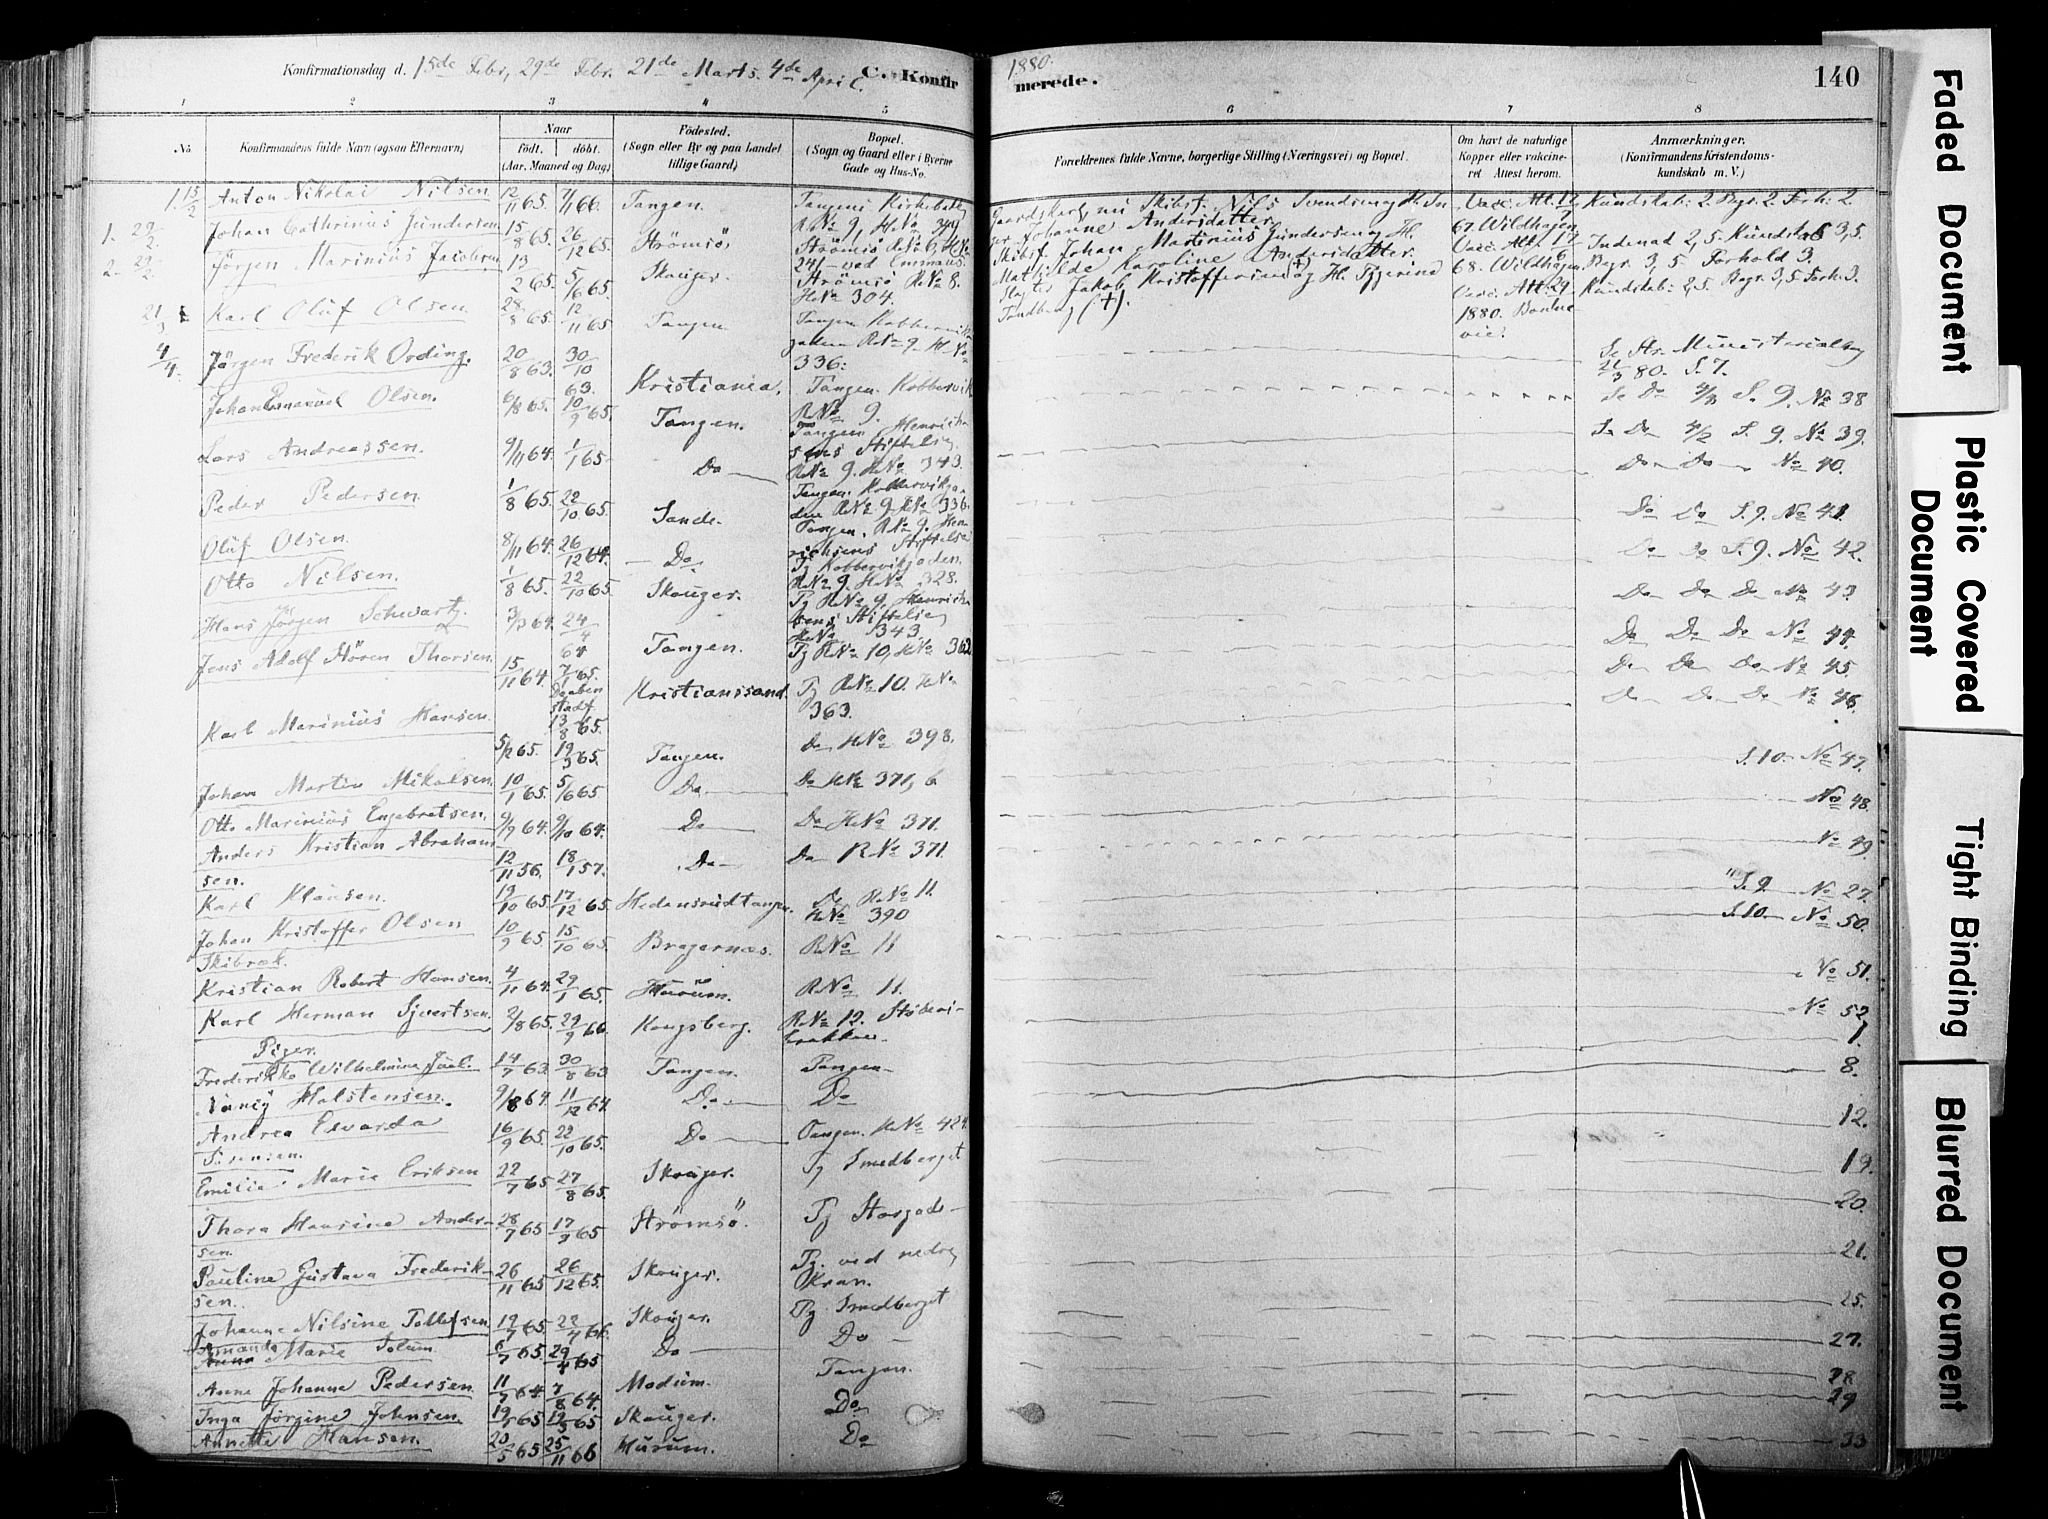 Konfirmationsdag d. 15de Febr, 29de Febr. 21de Marts. 4de April. C. Konfir
1880.
merede.
140
1 2 3 4 5 6 7 8
No.
Konfirmandens fulde Navn (ogsaa Efternavn)
Naar
født. døbt.
(Aar, Maaned og Dag)
Fødested.
(Sogn eller By og paa Landet
tillige Gaard)
Bopæl.
(Sogn og Gaard eller i Byerne
Gade og Hus-No.
Forældrenes fulde Navne, borgerlige Stilling (Næringsvei) og Bopæl.
Om havt de naturlige
Kopper eller vakcine-
ret. Attest herom.
Anmærkninger.
(Konfirmandens Kristendoms-
kundskab m. V.)
1. 15/2 Anton Nikolai Nilsen 12/11 65. 7/1 66. Tangen. Tangens Kirkebakke
RNo 9, HNo 349
Skibsf. Nils Svendsen og H.
Johanne Andersdatter
67. Wildhagen
Kundskab: 2. Begr. 2. Forh: 2.
1. 29/2. Johan Cathrinius Gundersen 15/8 65. 26/12 65. Strömsö Strömsö RNo 6, HNo
241 ved Emmaus.
Skibsf. Johan Martinius Gundersen og H.
Mathilde Karoline Andersdatter.
68. Wildhagen
Indenad 2,5. Kundskab 3,5.
Begr. 3,5 Forhold 3.
2. 29/2 Jörgen Marinius Jacobsen 13/2 65. 5/6 65. Skouger. Strömsö RNo 8.
HNo 304.
Jakob Kristoffersen og H.
Tandberg (+).
Vacc. Att. 29
1880.
Kundskab: 2,5. Begr. 3,5 Forh. 3.
21/3 Karl Oluf Olsen. 28/8 65. 12/11 65 Tangen Tangen Kobbervik
gaden RNo 9. HNo
336.
Se Str. Ministerialbog
21/3 80. S. 7.
4/4. Jörgen Frederik Ording. 20/8 63. 30/10 63. Kristiania. Tangen. Kobbervik
RNo 9.
Se Do 4/4 S. 9. No 38
Johan Emanuel Olsen. 6/8 65. 10/9 65. Tangen. Tangen Henrich
sens Stiftelse
RNo 9. HNo 343.
Se Do 4/4 S. 9. No 39.
Lars Andreassen. 9/11 64. 1/1 65. Do Tangen. Kobbervikga-
den RNo 9 HNo 336.
Do Do No 40.
Peder Pedersen 1/8 65. 22/10 65. Sande. Tangen. RNo 9. Hen
richsens Stiftelse
Do Do S. 9. No 41.
Oluf Olsen. 8/11 64. 26/12 64. Do Tg Kobbervikgaden.
RNo 9. HNo 328.
Do Do S. 9. No 42.
Otto Nilsen. 1/8 65. 22/10 65. Skouger. Tg RNo 9, Henrich
sens Stiftelse
HNo 343.
Do Do Do No 43
Hans Jörgen Schwartz 3/3 64. 24/4 64 Tangen. Tg RNo 10, HNo 362
Do Do Do No 44.
Jens Adolf Hören Thorsen. 15/11 64. 7/1 65. Kristianssand. Tg RNo 10. HNo
363.
Do Do Do No 45.
13/8 65.
Do Do Do No 46.
Karl Marinius Hansen. 5/2 65. 19/3 65. Tangen. Do HNo 398.
S. 10. No 47.
Johan Martin Mikalsen. 10/1 65. 5/6 65 Do Do HNo 371, b
No 48.
Otto Marinius Engebretsen. 9/9 64. 9/10 64. Do Do HNo 371.
No 49.
Anders Kristian Abraham
sen. 12/11 56. 18/1 57. Do Do RNo 371.
S. 9. No 27.
Karl Klausen. 19/10 65. 17/12 65. Hedensrudtangen. Do RNo 11.
HNo 390
S. 10. No 50.
Johan Kristoffer Olsen
Skibrok. 10/9 65. 15/10 65. Bragernæs. RNo 11
No 51.
Kristian Robert Hansen. 4/11 64. 29/1 65. Hurum. RNo 11.
No 52
Karl Herman Sjvertsen. 2/8 65. 29/9 66. Kongsberg. RNo 12.
Piger.
1.
Frederikke Wilhelmine Juul. 14/7 63. 30/8 63 Tangen. Tangen
8.
Nancy Halstensen. 9/8 64. 11/12 64. Do Do
12.
Andrea Evarda
Sörensen. 16/9 65. 22/10 65. Do Tangen. HNo 424.
19.
Emilie Marie Eriksen 22/7 65. 27/8 65. Skouger. Tg Smedberget
20.
Thora Hansine Ander-
sen. 28/7 65 17/9 65 Strömsö. Tg Storgade
21.
Pauline Gustava Frederik-
sen. 26/11 65 26/12 65. Skouger. Tg. ved nedre
Kran.
25.
Johanne Nilsine Tollefsen 19/7 65. 22/4 66. Skouger. Tg Smedberget
27.
Amanda Marie Solum 6/7 65. 29/4 65 Do Do
28
Anne Johanne Pedersen 11/7 64. 7/8 64. Modum. Tangen.
29
Inga Jörgine Johnsen 65 65 Skouger. Do
Annette Hansen. 20/5 65 25/11 66 Hurum. Do
33
Faded Document
Plastic Covered
Document
Tight Binding
Blurred Document